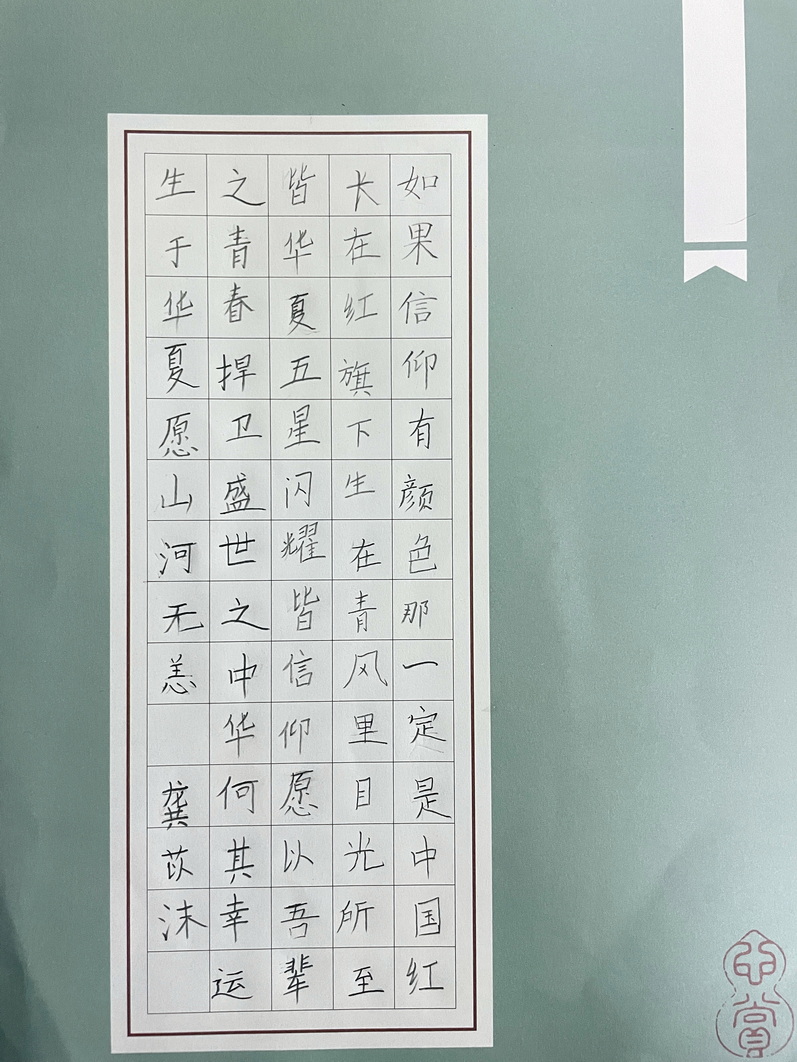 如果信仰有颜色那一定是中国红
长在红旗下生在青风里目光所至
皆华夏五星闪耀皆信仰愿以吾辈
之青春捍卫盛世之中华何其幸运
生于华夏愿山河无恙
龚苡沫